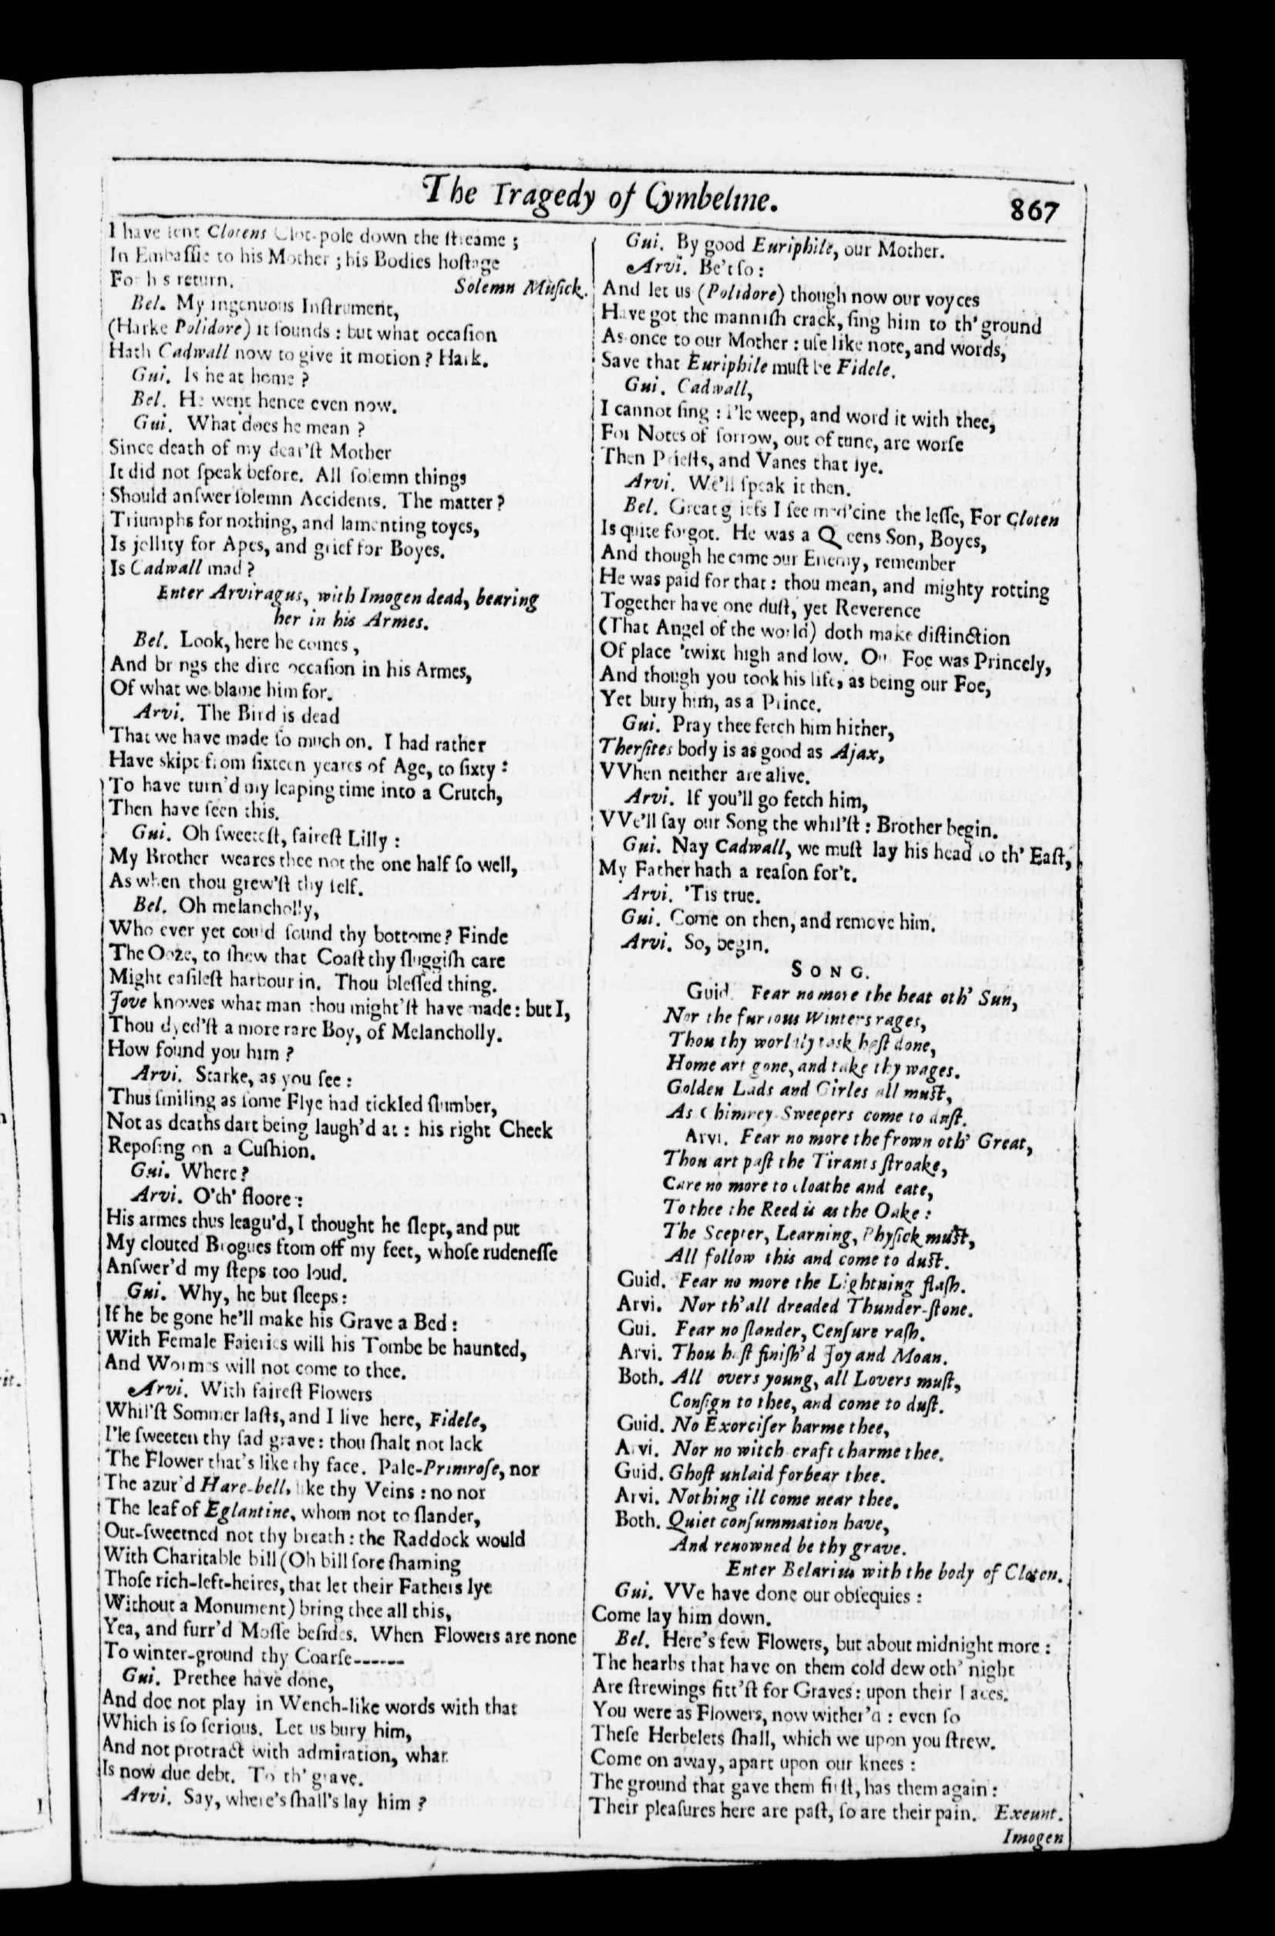 The Tragedy of Cymbeline.
867
I have sent Clotens Clot-pole down the streame;
In Embassie to his Mother; his Bodies hostage
For h s return. Solemn Musick.
Bel. My ingenuous Instrument,
(Harke Polidore) it sounds: but what occasion
Hath Cadwall now to give it motion? Hark.
Gui. Is he at home?
Bel. He went hence even now.
Gui. What does he mean?
Since death of my dear'st Mother
It did not speak before. All solemn things
Should answer solemn Accidents. The matter?
Triumphs for nothing, and lamenting toyes,
Is jollity for Apes, and grief for Boyes.
Is Cadwall mad?
Enter Arviragus, with Imogen dead, bearing
her in his Armes.
Bel. Look, here he comes,
And br ngs the dire occasion in his Armes,
Of what we blame him for.
Arvi. The Bird is dead
That we have made so much on. I had rather
Have skipt from sixteen yeares of Age, to sixty:
To have turn'd my leaping time into a Crutch,
Then have seen this.
Gui. Oh sweetest, fairest Lilly:
My Brother weares thee not the one half so well,
As when thou grew'st thy self.
Bel. Oh melancholly,
Who ever yet could sound thy bottome? Finde
The Ooze, to shew that Coast thy sluggish care
Might easilest harbour in. Thou blessed thing.
Jove knowes what man thou might'st have made: but I,
Thou dyed'st a more rare Boy, of Melancholly.
How found you him?
Arvi. Starke, as you see:
Thus smiling as some Flye had tickled slumber,
Not as deaths dart being laugh'd at: his right Cheek
Reposing on a Cushion.
Gui. Where?
Arvi. O'th' floore:
His armes thus leagu'd, I thought he slept, and put
My clouted Brogues from off my feet, whose rudenesse
Answer'd my steps too loud.
Gui. Why, he but sleeps:
If he be gone he'll make his Grave a Bed:
With Female Faieries will his Tombe be haunted,
And Wormes will not come to thee.
Arvi. With fairest Flowers
Whil'st Sommer lasts, and I live here, Fidele,
I'le sweeten thy sad grave: thou shalt not lack
The Flower that's like thy face. Pale-Primrose, nor
The azur'd Hare-bell, like thy Veins: no nor
The leaf of Eglantine, whom not to slander,
Out-sweetned not thy breath: the Raddock would
With Charitable bill (Oh bill sore shaming
Those rich-left-heires, that let their Fathers lye
Without a Monument) bring thee all this,
Yea, and furr'd Mosse besides. When Flowers are none
To winter-ground thy Coarse------
Gui. Prethee have done,
And doe not play in Wench-like words with that
Which is so serious. Let us bury him,
And not protract with admiration, what
Is now due debt. To th' grave.
Arvi. Say, where's shall's lay him?
Gui. By good Euriphile, our Mother.
Arvi. Be't so:
And let us (Polidore) though now our voyces
Have got the mannish crack, sing him to th' ground
As once to our Mother: use like note, and words,
Save that Euriphile must be Fidele.
Gui. Cadwall,
I cannot sing: I'le weep, and word it with thee,
For Notes of sorrow, out of tune, are worse
Then Priests, and Vanes that lye.
Arvi. We'll speak it then.
Bel. Great griefs I see med'cine the lesse, For Cloten
Is quite forgot. He was a Queens Son, Boyes,
And though he came our Enemy, remember
He was paid for that: thou mean, and mighty rotting
Together have one dust, yet Reverence
(That Angel of the world) doth make distinction
Of place 'twixt high and low. Our Foe was Princely,
And though you took his life, as being our Foe,
Yet bury him, as a Prince.
Gui. Pray thee fetch him hither,
Thersites body is as good as Ajax,
VVhen neither are alive.
Arvi. If you'll go fetch him,
VVe'll say our Song the whil'st: Brother begin.
Gui. Nay Cadwall, we must lay his head to th' East,
My Father hath a reason for't.
Arvi. 'Tis true.
Gui. Come on then, and remove him.
Arvi. So, begin.
SONG.
Guid. Fear no more the heat oth' Sun,
Nor the furious Winters rages,
Thou thy worldly task hast done,
Home art gone, and take thy wages.
Golden Lads and Girles all must,
As Chimney-Sweepers come to dust.
Arvi. Fear no more the frown oth' Great,
Thou art past the Tirants stroake,
Care no more to cloathe and eate,
To thee the Reed is as the Oake:
The Scepter, Learning, Physick must,
All follow this and come to dust.
Guid. Fear no more the Lightning flash.
Arvi. Nor th'all dreaded Thunder-stone.
Gui. Fear no slander, Censure rash.
Arvi. Thou hast finish'd Joy and Moan.
Both. All overs young, all Lovers must,
Consign to thee, and come to dust.
Guid. No Exorciser harme thee,
Arvi. Nor no witch-craft charme thee.
Guid. Ghost unlaid forbear thee.
Arvi. Nothing ill come near thee.
Both. Quiet consummation have,
And renowned be thy grave.
Enter Belarius with the body of Cloten.
Gui. VVe have done our obsequies:
Come lay him down.
Bel. Here's few Flowers, but about midnight more:
The hearbs that have on them cold dew oth' night
Are strewings fitt'st for Graves: upon their Faces.
You were as Flowers, now wither'd: even so
These Herbelets shall, which we upon you strew.
Come on away, apart upon our knees:
The ground that gave them first, has them again:
Their pleasures here are past, so are their pain. Exeunt.
Imogen